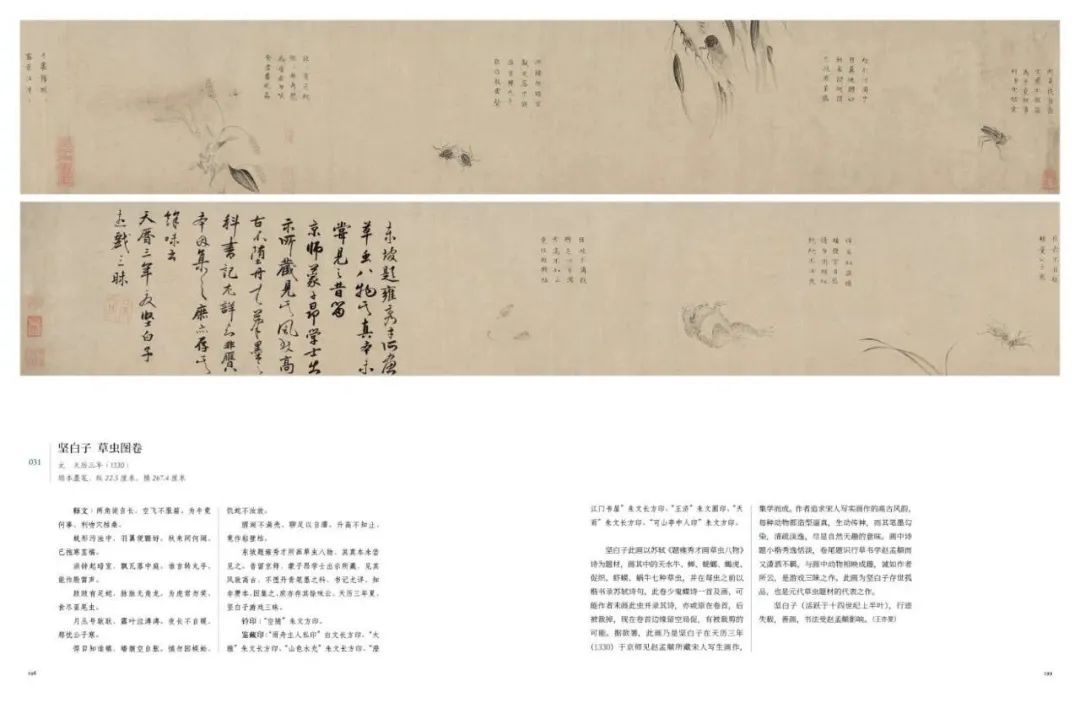 東坡題雍秀才所畫
草虫八物其真本未
嘗見之昔留
京師蒙子昂學士出
示所藏見其風致高
古不墮丹青筆墨之
科書記尤詳知非贋
本因集之庶亦存其
餘味云
天曆三年夏堅白子
遊戲三昧
031
坚白子 草虫图卷
元 天历三年（1330）
绢本墨笔，纵 22.5 厘米，横 267.4 厘米
释文：两角徒自长，空飞不服箱。为牛竟
何事，利吻穴枯桑。
蜕形污浊中，羽翼便翾好。秋来间何阔，
已抱寒茎槁。
洪钟起暗室，飘瓦落中庭。谁言转丸手，
能作殷雷声。
跂跂有足蛇，脉脉无角龙。为虎君勿笑，
食尽虿尾虫。
月丛号耿耿，露叶泣漙漙。夜长不自暖，
那忧公子寒。
得目知谁瞋，皤腹空自胀。慎勿困蜈蚣，
饥蛇不汝放。
腥涎不满壳，聊足以自濡。升高不知止，
竟作粘壁枯。
东坡题雍秀才所画草虫八物，其真本未尝
见之。昔留京师，蒙子昂学士出示所藏，见其
风致高古，不堕丹青笔墨之科。书记尤详，知
非赝本，因集之，庶亦存其余味云。天历三年夏，
坚白子游戏三昧。
钤印：“空捕”朱文方印。
鉴藏印：“雨舟主人私印”白文长方印、“大
雅”朱文长方印、“山色水光”朱文长方印、“澄
江门书屋”朱文长方印、“王济”朱文圆印、“天
雨”朱文长方印、“可山亭中人印”朱文方印。
坚白子此画以苏轼《题雍秀才画草虫八物》
诗为题材，画其中的天水牛、蝉、蜣螂、蝎虎、
促织、虾蟆、蜗牛七种草虫，并在每虫之前以
楷书录苏轼诗句。此卷少鬼蝶诗一首及画，可
能作者未画此虫并录其诗，亦或原在卷首，后
被裁掉，现在卷首边缘留空局促，有被裁剪的
可能。据款署，此画乃是坚白子在天历三年
（1330）于京师见赵孟頫所藏宋人写生画作，
集学而成。作者追求宋人写实画作的高古风韵，
每种动物都造型逼真，生动传神，而其笔墨勾
染，清疏淡逸，尽是自然天趣的意味。画中诗
题小楷秀逸恬淡，卷尾题识行草书学赵孟頫而
又潇洒不羁，与画中动物相映成趣，诚如作者
所云，是游戏三昧之作。此画为坚白子存世孤
品，也是元代草虫题材的代表之作。
坚白子（活跃于十四世纪上半叶），行迹
失载，善画，书法受赵孟頫影响。（王亦旻）
198
199